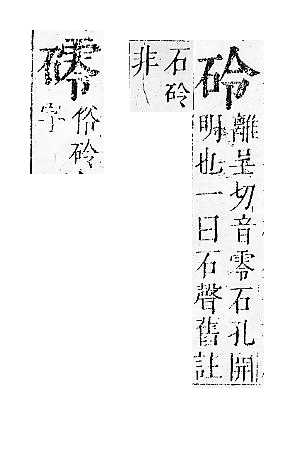 砱
離呈切音零石孔開
明也一曰石聲舊註
石砱
非
䨩
俗砱
字